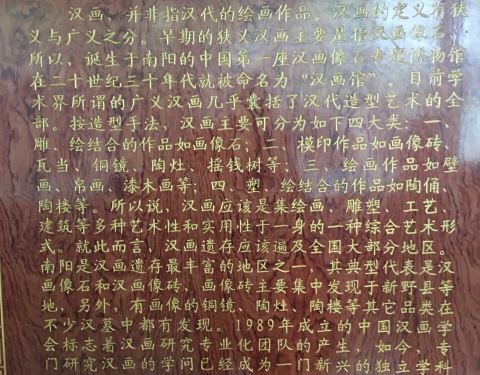 汉画，并非指汉代的绘画作品。汉画的定义有狭
义与广义之分。早期的狭义汉画主要是指汉画像石，
所以，诞生于南阳的中国第一座汉画像石专题博物馆
在二十世纪三十年代就被命名为“汉画馆”。目前学
术界所谓的广义汉画几乎囊括了汉代造型艺术的全
部。按造型手法，汉画主要可分为如下四大类：一、
雕、绘结合的作品如画像石；二、模印作品如画像砖、
瓦当、铜镜、陶灶、摇钱树等；三、绘画作品如壁
画、帛画、漆木画等；四、塑、绘结合的作品如陶俑、
陶楼等。所以说，汉画应该是集绘画、雕塑、工艺、
建筑等多种艺术性和实用性于一身的一种综合艺术形
式。就此而言，汉画遗存应该遍及全国大部分地区。
南阳是汉画遗存最丰富的地区之一，其典型代表是汉
画像石和汉画像砖，画像砖主要集中发现于新野县等
地，另外，有画像的铜镜、陶灶、陶楼等其它品类在
不少汉墓中都有发现。1989年成立的中国汉画学
会标志着汉画研究专业化团队的产生，如今，专
门研究汉画的学问已经成为一门新兴的独立学科